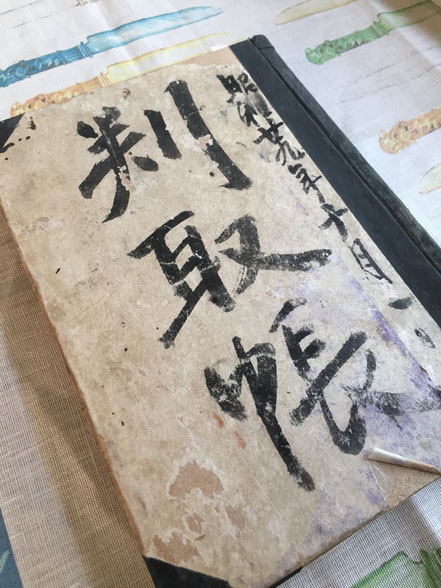 昭和廿九年十月
判取帳